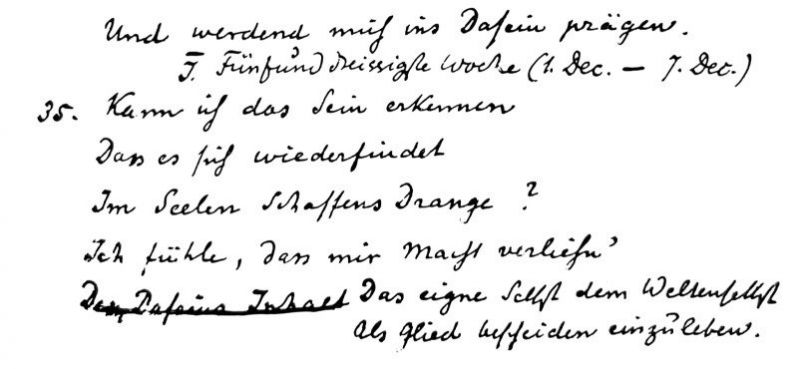 Und werdend mich ins Dasein prägen.
I. Fünfunddreissigste Woche (1. Dec. – 7. Dec.)
35. Kann ich das Sein erkennen
Dass es sich wiederfindet
Im Seelen Schaffens Drange?
Ich fühle, dass mir Macht verlieh'n
Des Daseins Inhalt Das eigne Selbst dem Weltenselbst
Als Glied bescheiden einzuleben.